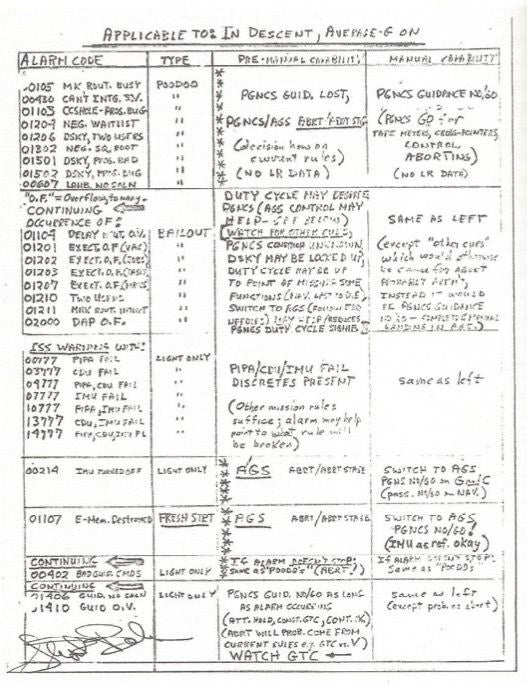 APPLICABLE TO: IN DESCENT, AVERAGE-G ON
ALARM CODE TYPE PRE-MANUAL CAPABILITY MANUAL CAPABILITY
00105 MK ROUT. BUSY POODOO
00430 CAN'T INTG. S.V. "
01103 CCSHOLE-PROG. BUG "
01204 NEG. WAITLIST "
01206 DSKY, TWO USERS "
01302 NEG. SQ. ROOT "
01501 DSKY, PROG. BAD "
01502 DSKY, PROG. BUG "
00607 LAMB. NO SOLN "
PGNCS GUID. LOST,
PGNCS/AGS ABRT/ABRT STG
(decision how on
current rules)
(NO LR DATA)
PGNCS GUIDANCE NO/GO
(PGNCS GO for
TAPE METERS, CROSS-POINTERS,
CONTROL,
ABORTING)
(NO LR DATA)
"O.F." = Overflow, too many.
CONTINUING
OCCURENCE OF:
01109 DELAY ROUT. O.F. BAILOUT
01201 EXECT. O.F. (VAC) "
01202 EXECT. O.F. (JOBS) "
01203 EXECT. O.F. (TASKS) "
01207 EXECT. O.F. "
01210 TWO USERS "
01211 MRK ROUT. INTRUPT "
02000 DAP O.F. "
DUTY CYCLE MAY DEGRADE
PGNCS (AGS CONTROL MAY
HELP - SEE BELOW)
WATCH FOR OTHER CUES,
PGNCS CONDITION UNKNOWN
DSKY MAY BE LOCKED UP,
DUTY CYCLE MAY BE UP
TO POINT OF MISSING SOME
FUNCTIONS (NAV. LAST TO DIE)
SWITCH TO AGS (FOLLOW ERR
NEEDLES) MAY HELP (REDUCES
PGNCS DUTY CYCLE
SAME AS LEFT
(except "other cues"
which would otherwise
be cause for ABORT
INSTEAD IT WOULD
BE PGNCS GUIDANCE
NO/GO - COMPLETE MANUAL
LANDING IN AGS.)
ISS WARNING WITH:
00777 PIPA FAIL LIGHT ONLY
03777 CDU FAIL "
04777 PIPA, CDU FAIL "
07777 IMU FAIL "
10777 PIPA, IMU FAIL "
13777 CDU, IMU FAIL "
14777 PIPA, CDU, IMU FL "
PIPA/CDU/IMU FAIL
DISCRETES PRESENT
(Other mission rules
suffice; alarm may help
point to what rule will
be broken)
same as left
00214 IMU TURNED OFF LIGHT ONLY AGS ABRT/ABRT STAGE
SWITCH TO AGS
PGNS NO/GO on G and C
(poss. NO/GO on NAV.)
01107 E-Mem. Destroyed FRESH STRT AGS ABRT/ABRT STAGE
SWITCH TO AGS
PGNCS NO/GO!
(IMU as ref. okay)
CONTINUING
00402 BAD GUID. CMDS LIGHT ONLY
IF ALARM DOESN'T STOP:
SAME AS "POODOO'S" (ABRT,)
IF ALARM DOESN'T STOP:
Same as "POODOOs"
CONTINUING
01406 GUID. NO SOLN LIGHT ONLY
01410 GUID O.V. "
PGNCS GUID. NO/GO AS LONG
AS ALARM OCCURING
(ATT. HOLD, CONST. GTC, CONT. OK)
(ABRT WILL PROB. COME FROM
CURRENT RULES e.g. GTC vs. V)
WATCH GTC
same as left